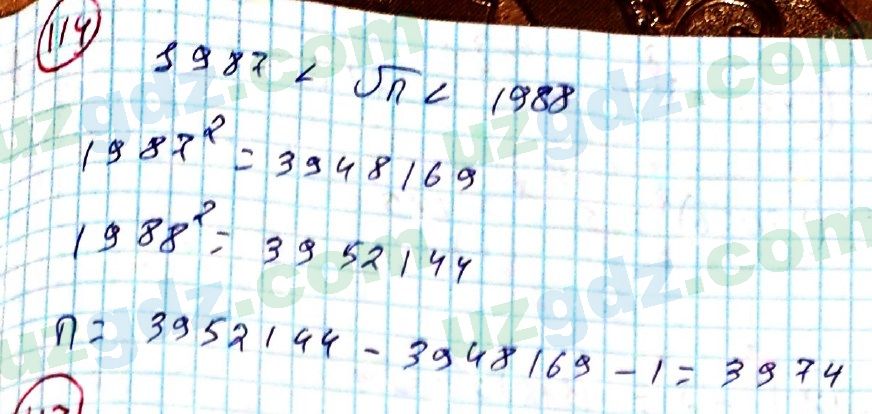 114
1987 < √n < 1988
1987² = 3948169
1988² = 3952144
n = 3952144 - 3948169 - 1 = 3974
uzgdz.com
uzgdz.com
uzgdz.com
uzgdz.com